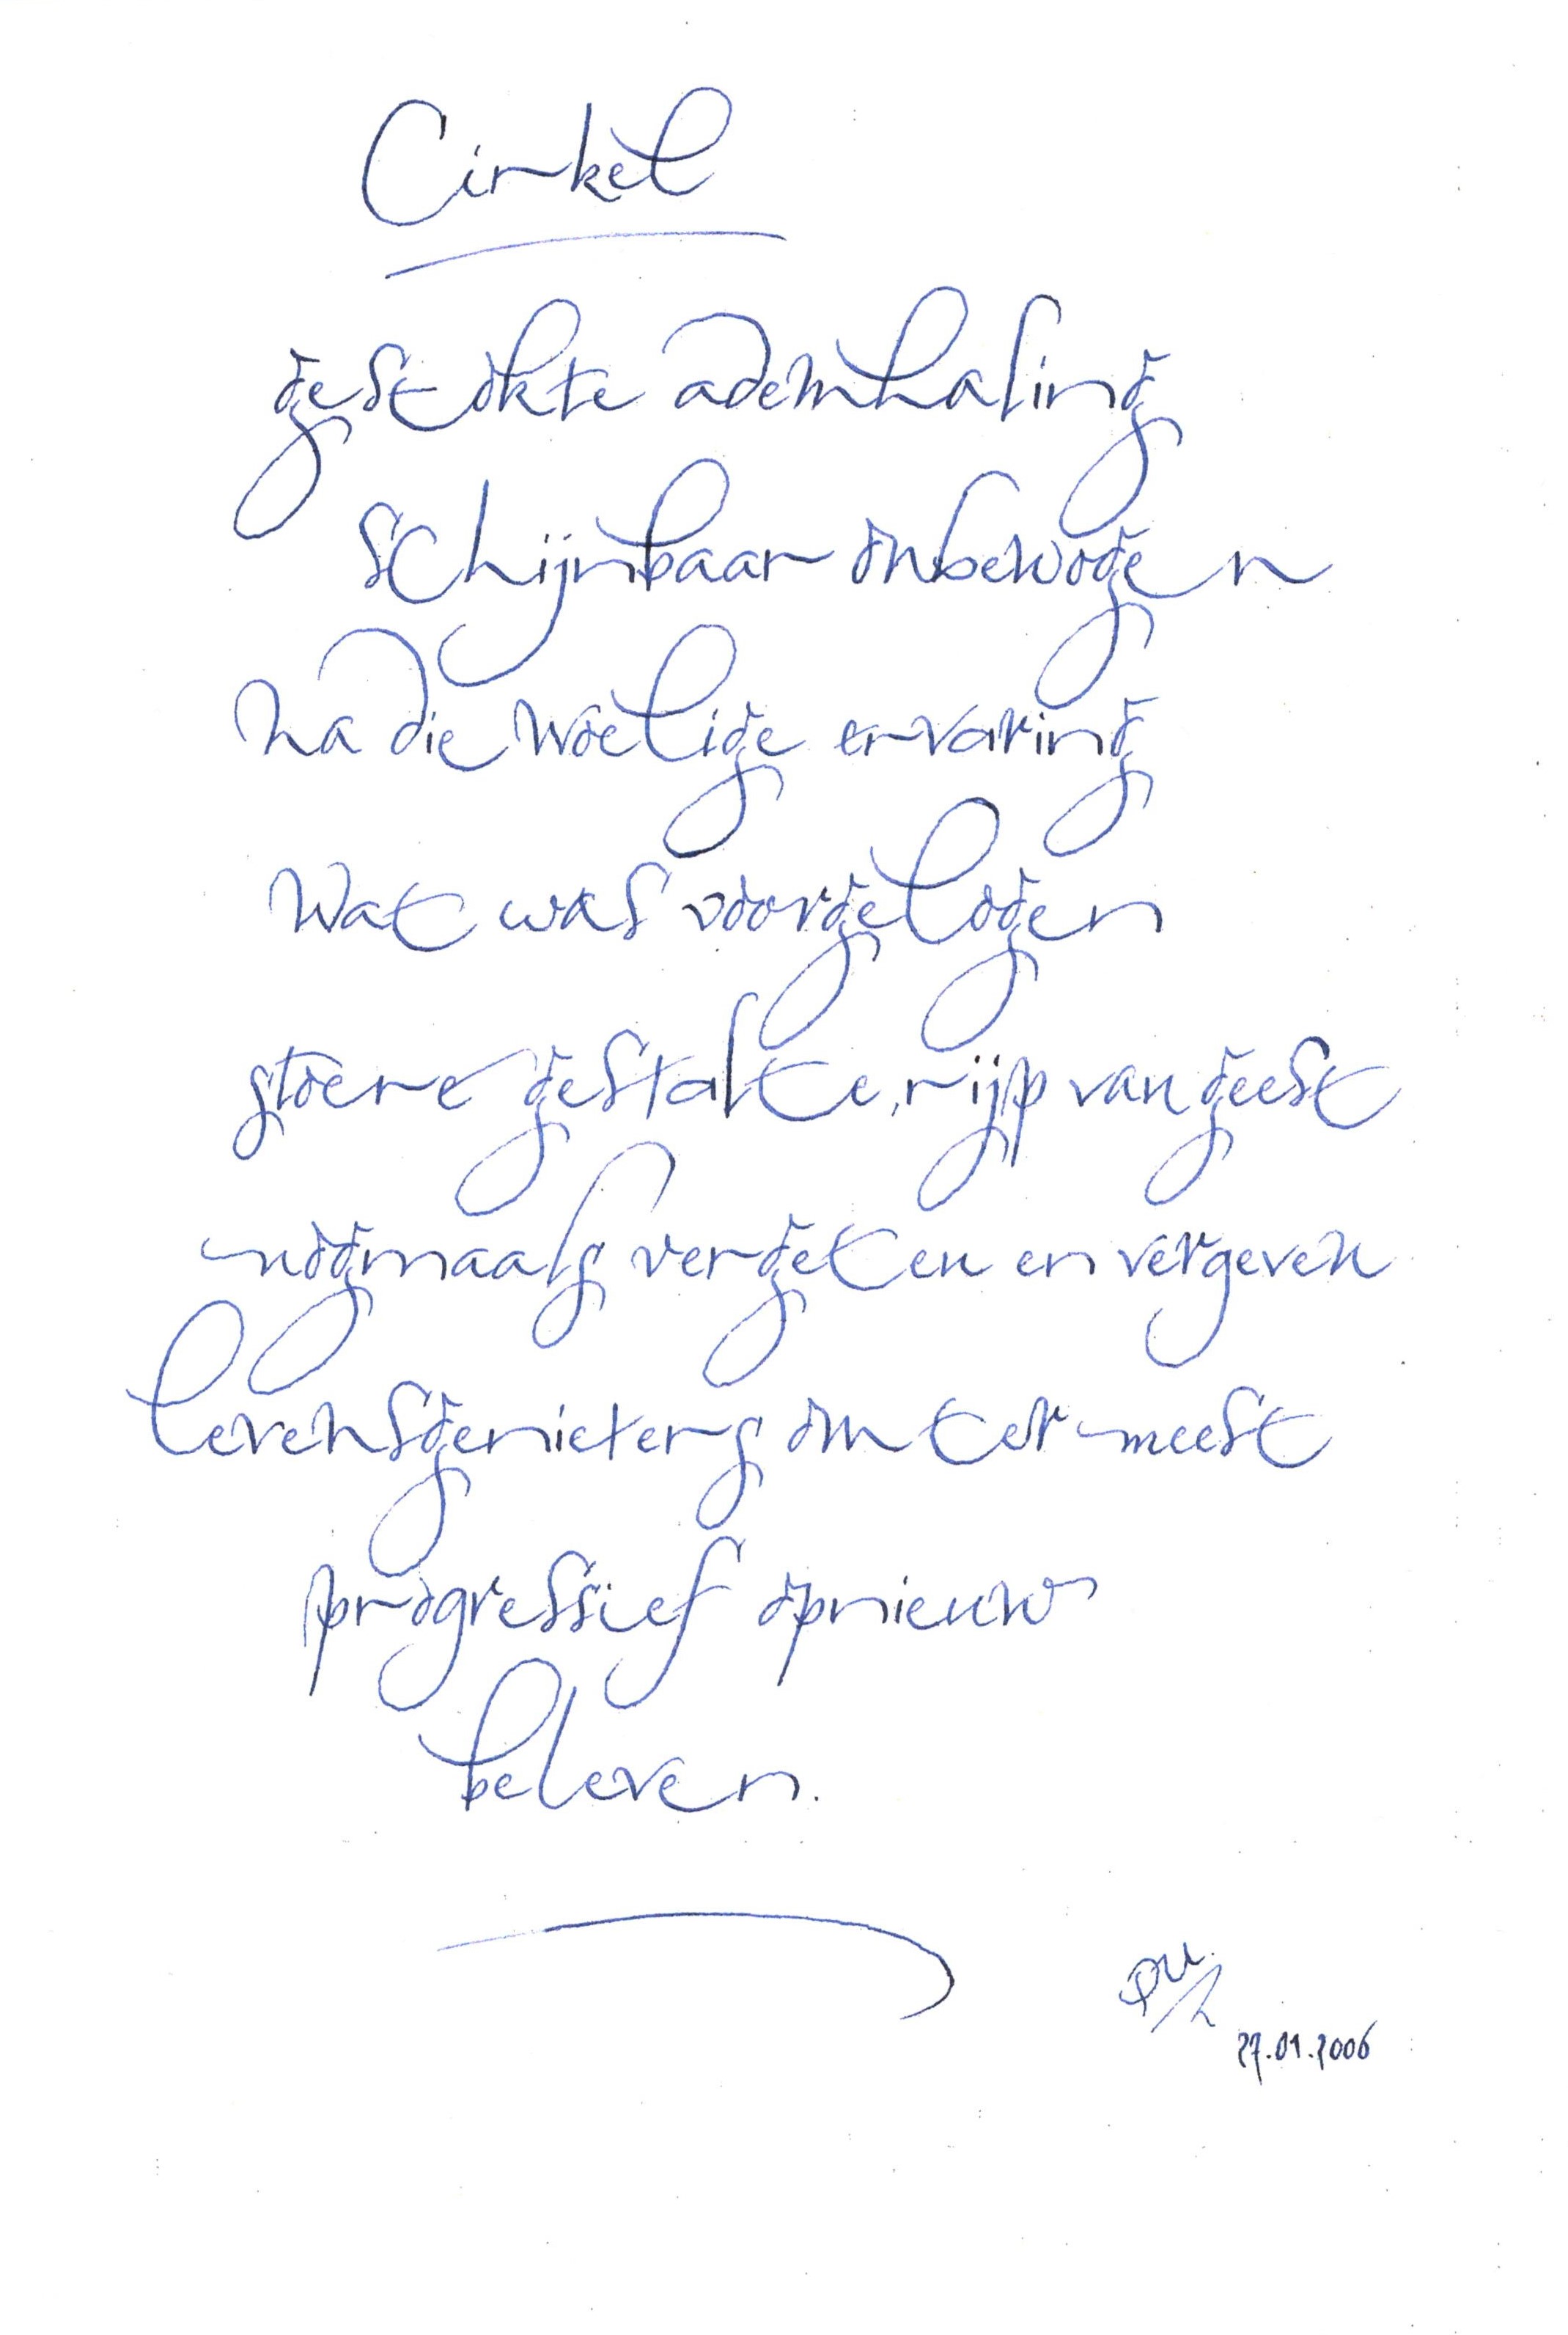 Cirkel
gestokte ademhaling
schijnbaar onbewogen
na die woelige ervaring
wat was voorgelogen
stoere gestalte, rijp van geest
nogmaals vergeten en vergeven
levensgenieters om ter meest
progressief opnieuw
beleven.
27.01.2006